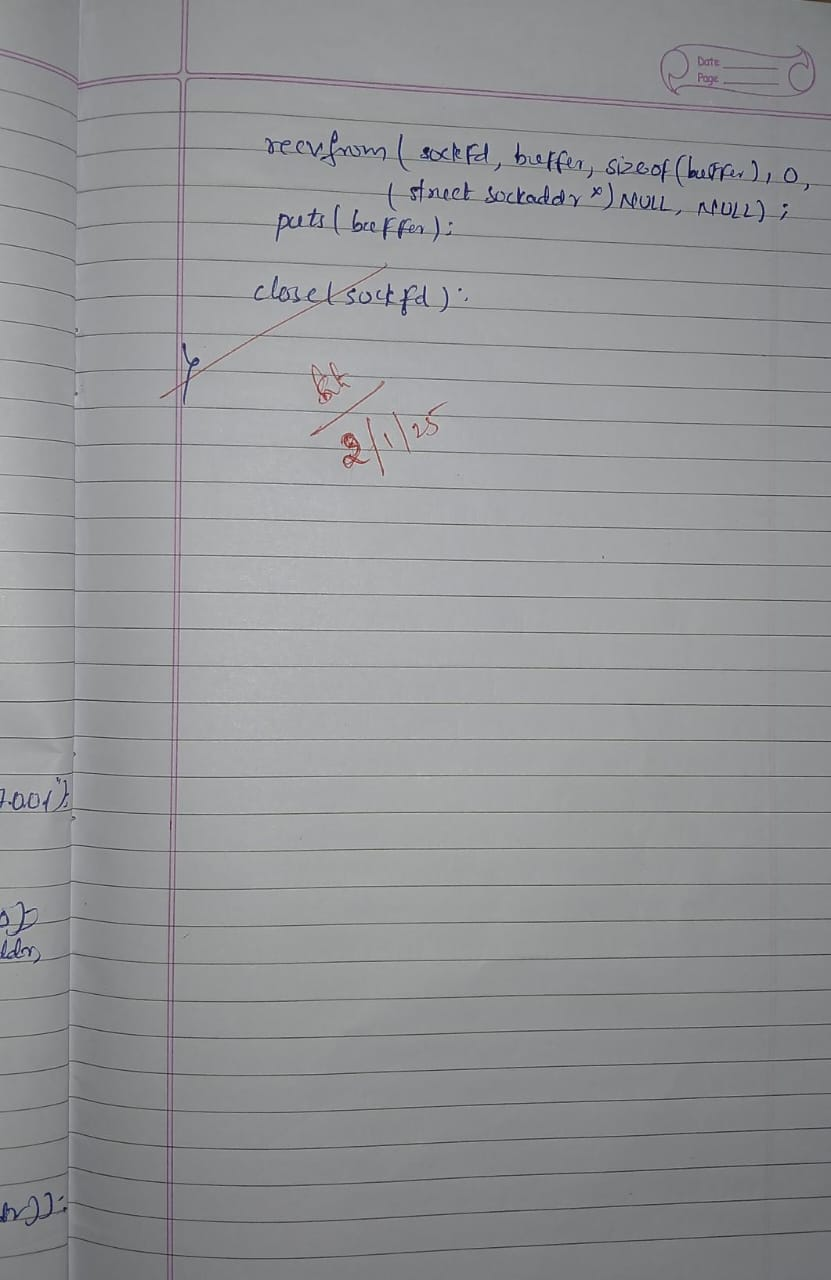 Date
Page
recvfrom ( sockfd, buffer, sizeof (buffer), 0,
( struct sockaddr *) NULL, NULL) ;
puts ( buffer );
close ( sockfd ) ;
}
2/1/25